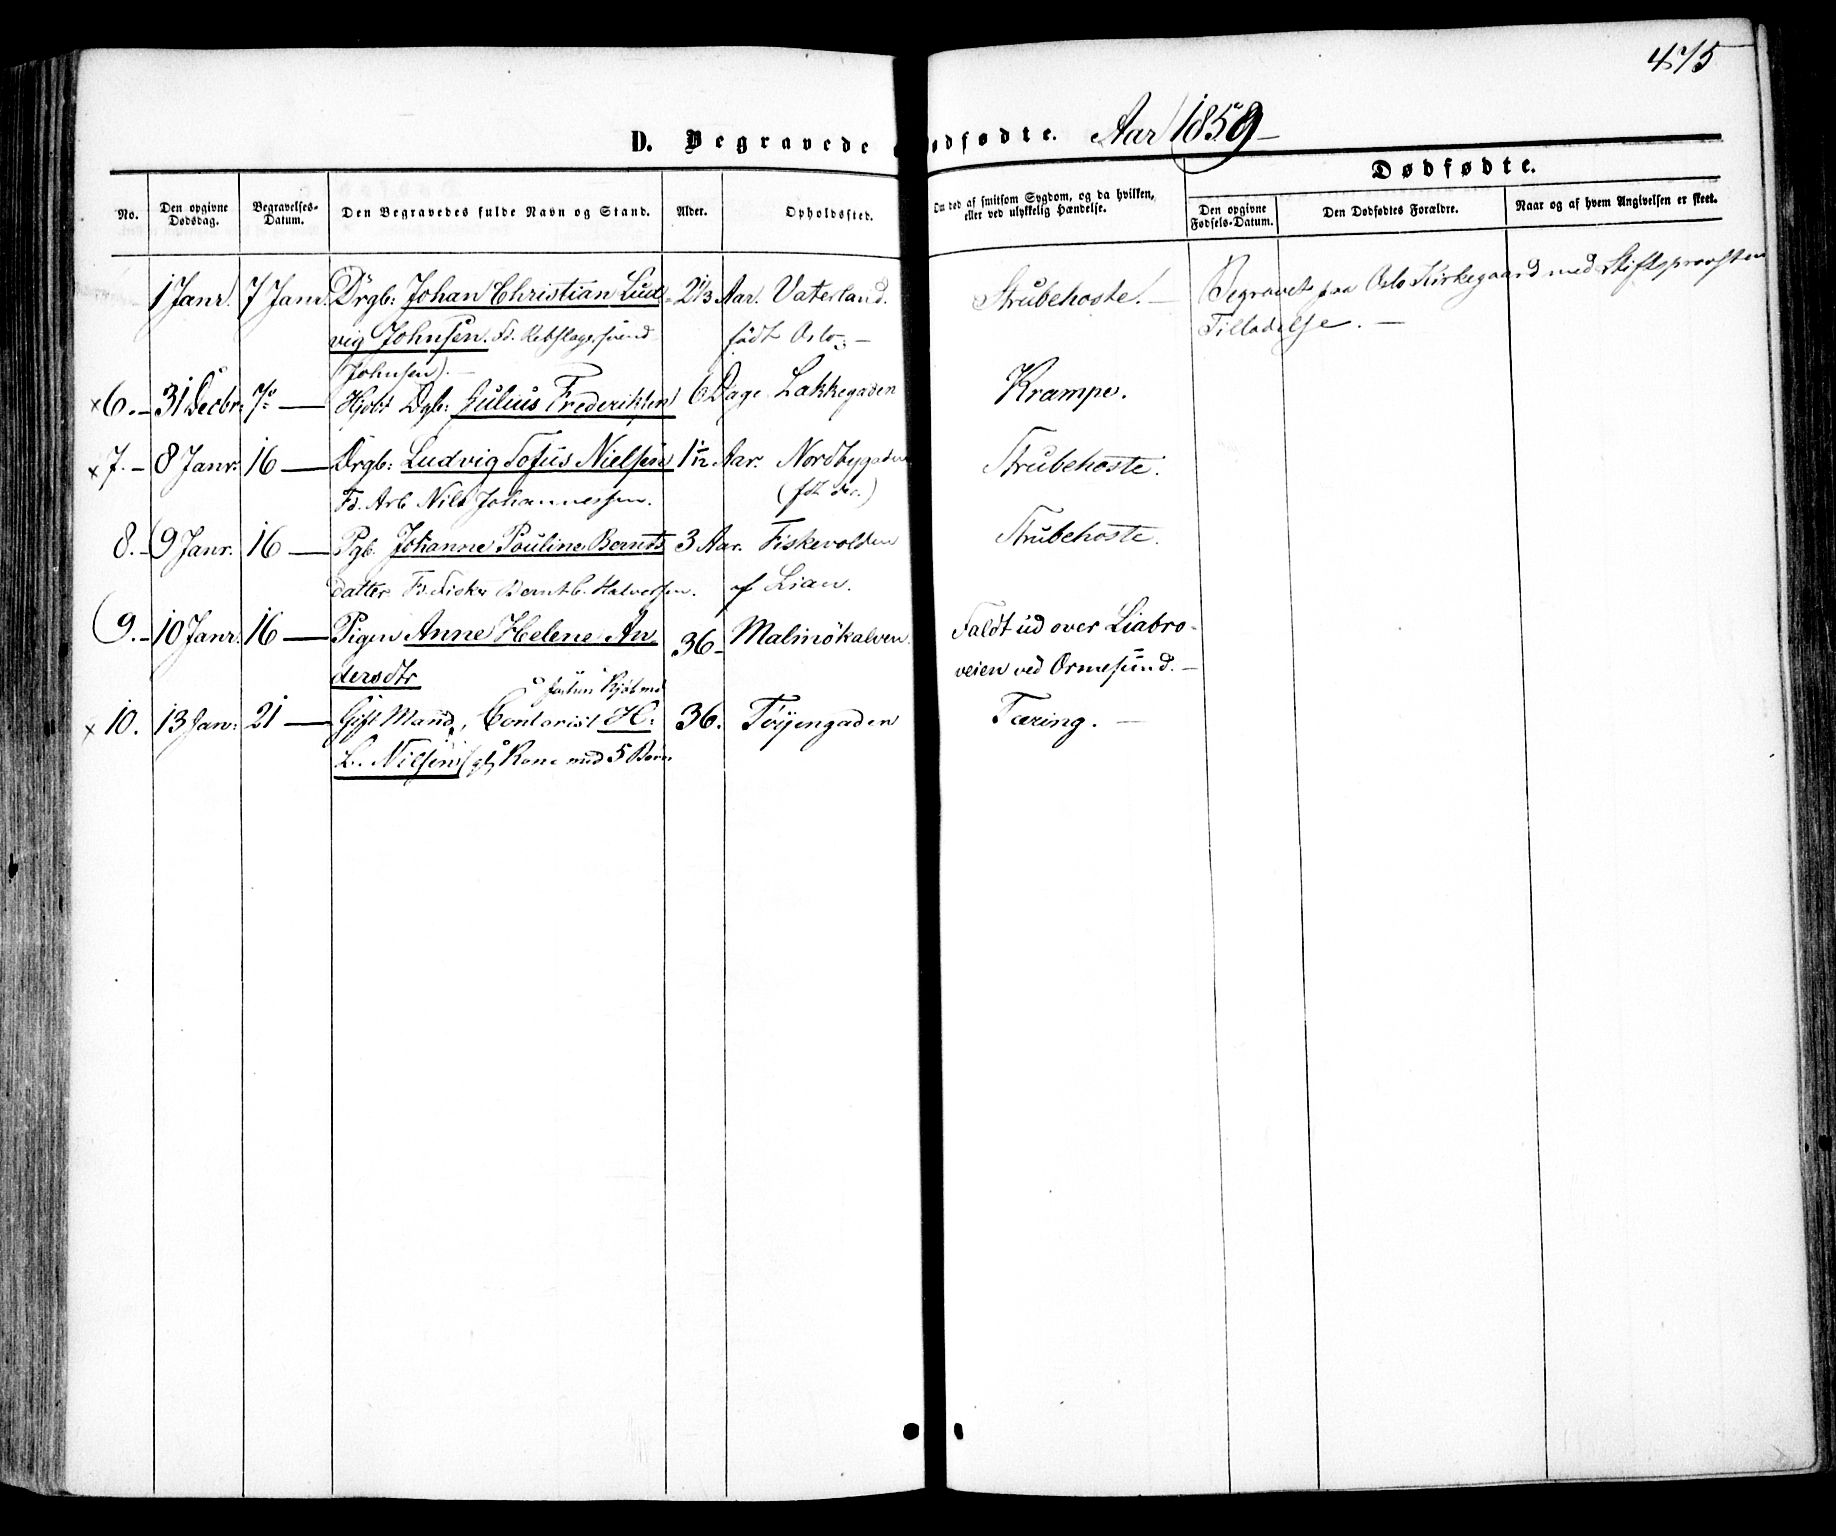 475
D. Begravede
ødfødte. Aar 1859
Dødfødte.
No.
Den opgivne Dødsdag.
Begravelses-Datum.
Den Begravedes fulde Navn og Stand.
Alder.
Opholdssted.
Om død af smitsom Sygdom, og da hvilken, eller ved ulykkelig Hændelse.
Den opgivne Fødsels-Datum.
Den Dødfødtes Forældre.
Naar og af hvem Angivelsen er skeet.
1 Janr. 7 Janr. Drgb: Johan Christian Lud- 2 1/3 Aar. Vaterland. Strubehoste. — Begravet paa Oslo Kirkegaard med Stiftsprovsten
vig Johnsen. Fd. Rebslagersvend født Oslo — Tilladelse. —
Johnsen). —
x 6. – 31 Decbr: 7 — Hjdt Dgb: Julius Frederiksen 6 Dage Lakkegaden Krampe.
x 7. – 8 Janr: 16 — Drgb: Ludvig Tofus Nielsen 1 1/12 Aar. Nordbygaden Strubehoste.
Fd. Arb Nils Johannessen. (fdt der.)
8. – 9 Janr. 16 — Pgb. Johanne Pouline Bernts 3 Aar. Fiskevolden Strubehoste.
datter Fd. Fisker Bernt C. Halvorsen. af Lian.
9. – 10 Janr. 16 — Pigen Anne Helene An 36 – Malmökalven. Faldt ud over Liabro-
dersdtr veien ved Ormesund. —
x 10. 13 Jan: 21 — Gift Mand, Contorist H. 36. Töyengaden Tæring. —
L. Nilsen Kone med 5 Børn